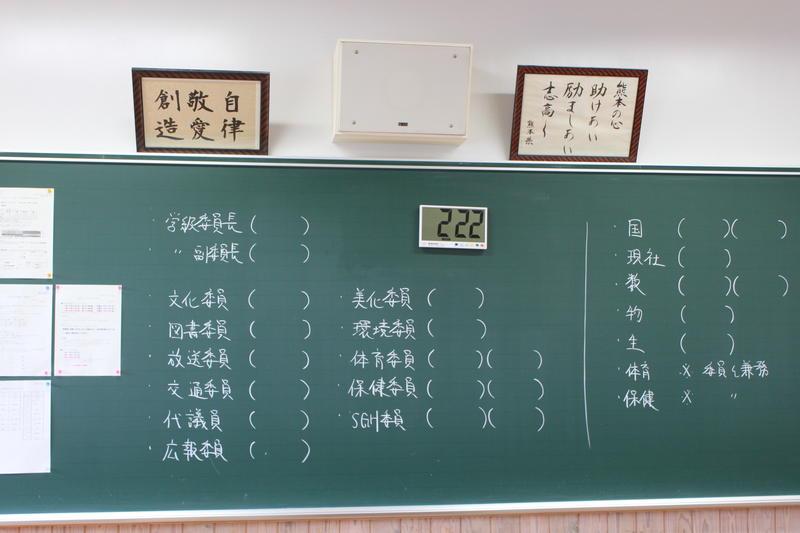 自律
敬愛
創造
熊本の心
助けあい
励ましあい
志高く
熊本県
222
・学級委員長( )
・〃 副委員長( )
・文化委員( )
・図書委員( )
・放送委員( )
・交通委員( )
・代議員( )
・広報委員( )
・美化委員( )
・環境委員( )
・体育委員( )( )
・保健委員( )( )
・SGH委員( )( )
・国( )( )
・現社( )
・数( )( )
・物( )
・生( )
・体育 × 委員と兼務
・保健 × 〃